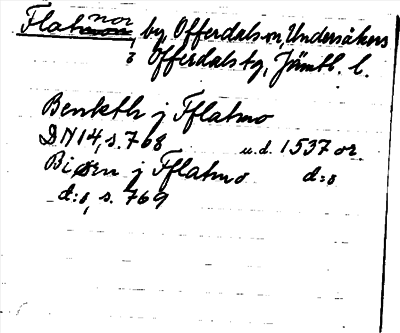 Flatnor, by, Offerdals sn, Undersåkers
o Offerdals tg, Jämtl. l.
Benkth j Fflatmo
DN 14, s. 768 u.d. 1537 or.
Biøen j Fflatmo d:o
d:o, s. 769